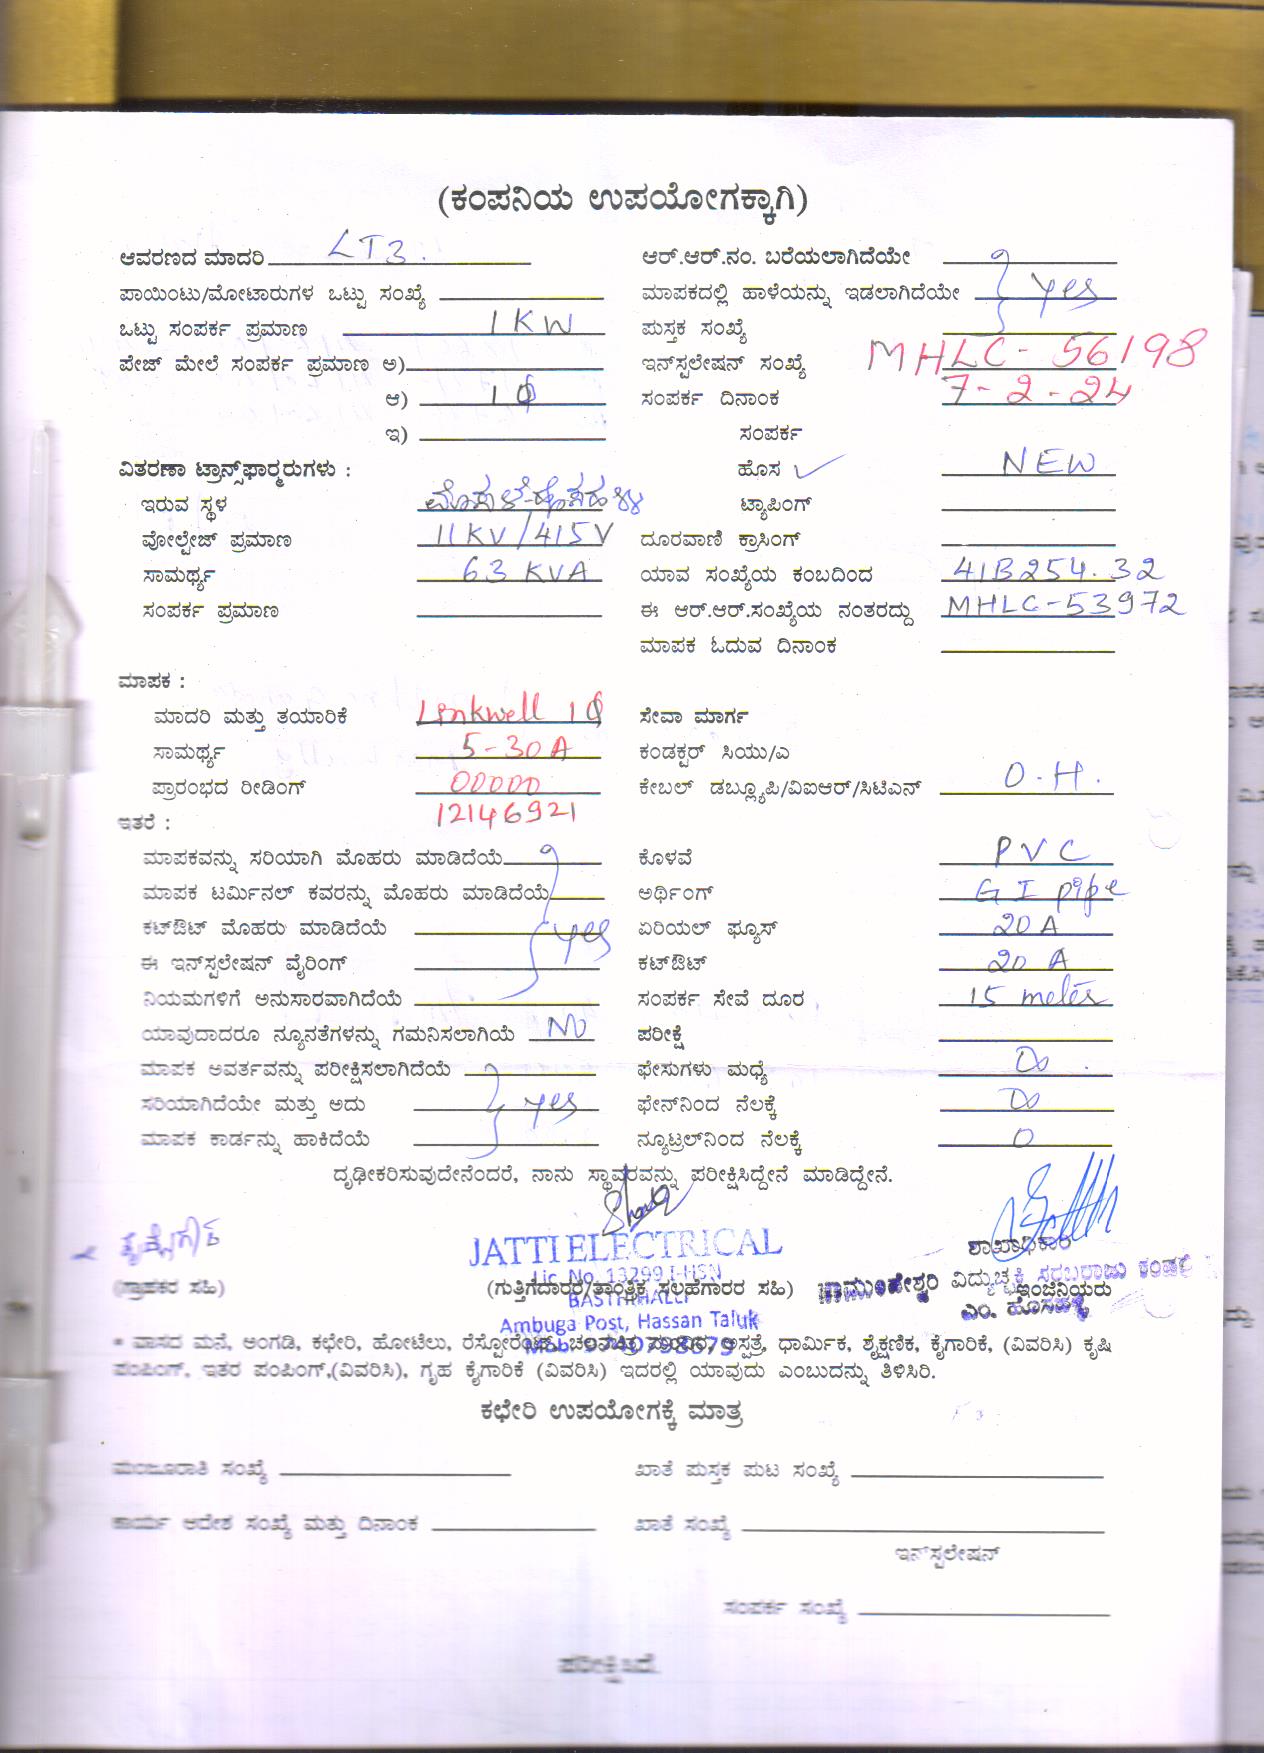 (ಕಂಪನಿಯ ಉಪಯೋಗಕ್ಕಾಗಿ)
ಆವರಣದ ಮಾದರಿ LT3. ಆರ್.ಆರ್.ನಂ. ಬರೆಯಲಾಗಿದೆಯೇ
ಪಾಯಿಂಟು/ಮೋಟಾರುಗಳ ಒಟ್ಟು ಸಂಖ್ಯೆ ಮಾಪಕದಲ್ಲಿ ಹಾಳೆಯನ್ನು ಇಡಲಾಗಿದೆಯೇ yes
ಒಟ್ಟು ಸಂಪರ್ಕ ಪ್ರಮಾಣ 1 KW ಪುಸ್ತಕ ಸಂಖ್ಯೆ
ಪೇಜ್ ಮೇಲೆ ಸಂಪರ್ಕ ಪ್ರಮಾಣ ಅ) ಇನ್‌ಸ್ಟಲೇಷನ್ ಸಂಖ್ಯೆ MHLC - 56198
ಆ) 1ϕ ಸಂಪರ್ಕ ದಿನಾಂಕ 7-2-24
ಇ) ಸಂಪರ್ಕ
ವಿತರಣಾ ಟ್ರಾನ್ಸ್‌ಫಾರ್‍ಮರುಗಳು : ಹೊಸ ✓ NEW
ಇರುವ ಸ್ಥಳ ಟ್ಯಾಪಿಂಗ್
ವೋಲ್ಟೇಜ್ ಪ್ರಮಾಣ 11KV/415V ದೂರವಾಣಿ ಕ್ರಾಸಿಂಗ್
ಸಾಮರ್ಥ್ಯ 63 KVA ಯಾವ ಸಂಖ್ಯೆಯ ಕಂಬದಿಂದ 41B254.32
ಸಂಪರ್ಕ ಪ್ರಮಾಣ ಈ ಆರ್.ಆರ್.ಸಂಖ್ಯೆಯ ನಂತರದ್ದು MHLC-53972
ಮಾಪಕ ಓದುವ ದಿನಾಂಕ
ಮಾಪಕ :
ಮಾದರಿ ಮತ್ತು ತಯಾರಿಕೆ Linkwell 1ϕ ಸೇವಾ ಮಾರ್ಗ
ಸಾಮರ್ಥ್ಯ 5-30A ಕಂಡಕ್ಟರ್ ಸಿಯು/ಎ
ಪ್ರಾರಂಭದ ರೀಡಿಂಗ್ 00000 ಕೇಬಲ್ ಡಬ್ಲ್ಯೂಪಿ/ವಿಐಆರ್/ಸಿಟಿಎಸ್ O.H.
ಇತರೆ : 12146921
ಮಾಪಕವನ್ನು ಸರಿಯಾಗಿ ಮೊಹರು ಮಾಡಿದೆಯೆ ಕೊಳವೆ PVC
ಮಾಪಕ ಟರ್ಮಿನಲ್ ಕವರನ್ನು ಮೊಹರು ಮಾಡಿದೆಯೆ ಅರ್ಥಿಂಗ್ GI pipe
ಕಟ್‌ಔಟ್ ಮೊಹರು ಮಾಡಿದೆಯೆ yes ಏರಿಯಲ್ ಫ್ಯೂಸ್ 20A
ಈ ಇನ್‌ಸ್ಟಲೇಷನ್ ವೈರಿಂಗ್ ಕಟ್‌ಔಟ್ 20 A
ನಿಯಮಗಳಿಗೆ ಅನುಸಾರವಾಗಿದೆಯೆ ಸಂಪರ್ಕ ಸೇವೆ ದೂರ 15 meter
ಯಾವುದಾದರೂ ನ್ಯೂನತೆಗಳನ್ನು ಗಮನಿಸಲಾಗಿಯೆ NO ಪರೀಕ್ಷೆ
ಮಾಪಕ ಅವರ್ತವನ್ನು ಪರೀಕ್ಷಿಸಲಾಗಿದೆಯೆ ಫೇಸುಗಳು ಮಧ್ಯೆ ∞
ಸರಿಯಾಗಿದೆಯೇ ಮತ್ತು ಅದು yes ಫೇಸ್‌ನಿಂದ ನೆಲಕ್ಕೆ ∞
ಮಾಪಕ ಕಾರ್ಡನ್ನು ಹಾಕಿದೆಯೆ ನ್ಯೂಟ್ರಲ್‌ನಿಂದ ನೆಲಕ್ಕೆ 0
ದೃಢೀಕರಿಸುವುದೇನೆಂದರೆ, ನಾನು ಸ್ಥಾವರವನ್ನು ಪರೀಕ್ಷಿಸಿದ್ದೇನೆ ಮಾಡಿದ್ದೇನೆ.
JATTI ELECTRICAL ಶಾಖಾಧಿಕಾರಿ
Lic. No. 13299 HSN ಚಾಮುಂಡೇಶ್ವರಿ ವಿದ್ಯುಚ್ಛಕ್ತಿ ಸರಬರಾಜು ಕಂಪನಿ
(ಗ್ರಾಹಕರ ಸಹಿ) (ಗುತ್ತಿಗೆದಾರರ/ತಾಂತ್ರಿಕ ಸಲಹೆಗಾರರ ಸಹಿ) ಇಂಜಿನಿಯರು
BASTHIHALLI ಎಂ. ಹೊಸಹಳ್ಳಿ
Ambuga Post, Hassan Taluk
Mob: 9740798679
* ವಾಸದ ಮನೆ, ಅಂಗಡಿ, ಕಛೇರಿ, ಹೋಟೆಲು, ರೆಸ್ಟೋರೆಂಟ್, ಚಲನಚಿತ್ರ ಮಂದಿರ, ಅಸ್ಪತ್ರೆ, ಧಾರ್ಮಿಕ, ಶೈಕ್ಷಣಿಕ, ಕೈಗಾರಿಕೆ, (ವಿವರಿಸಿ) ಕೃಷಿ
ಪಂಪಿಂಗ್, ಇತರ ಪಂಪಿಂಗ್,(ವಿವರಿಸಿ), ಗೃಹ ಕೈಗಾರಿಕೆ (ವಿವರಿಸಿ) ಇದರಲ್ಲಿ ಯಾವುದು ಎಂಬುದನ್ನು ತಿಳಿಸಿರಿ.
ಕಛೇರಿ ಉಪಯೋಗಕ್ಕೆ ಮಾತ್ರ
ಮಂಜೂರಾತಿ ಸಂಖ್ಯೆ ಖಾತೆ ಪುಸ್ತಕ ಪುಟ ಸಂಖ್ಯೆ
ಕಾರ್ಯ ಆದೇಶ ಸಂಖ್ಯೆ ಮತ್ತು ದಿನಾಂಕ ಖಾತೆ ಸಂಖ್ಯೆ
ಇನ್‌ಸ್ಟಲೇಷನ್
ಸಂಪರ್ಕ ಸಂಖ್ಯೆ
ಪರೀಕ್ಷಿಸಿದೆ.